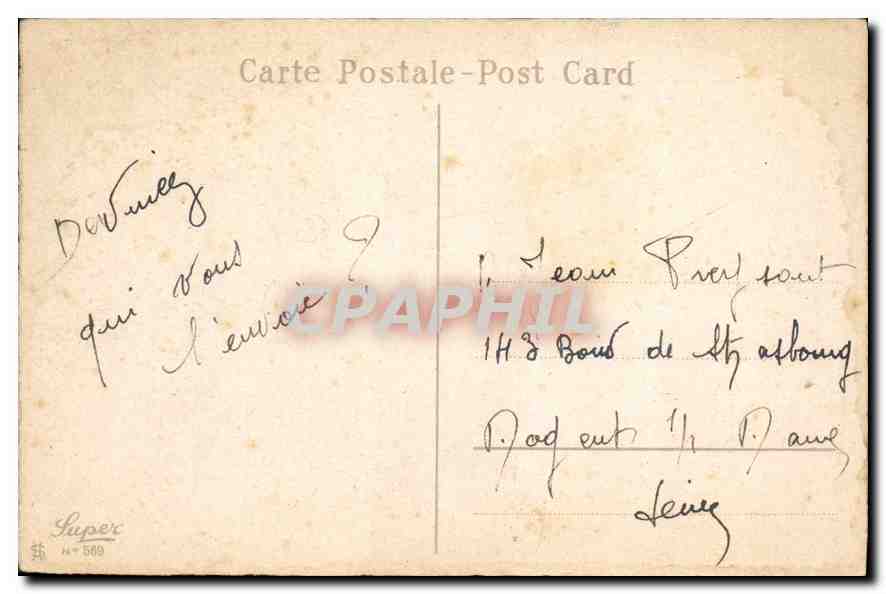 Carte Postale-Post Card
Devinez
qui vous
l'envoie ?
Jean
143 Boud de Strasbourg
Nogent s/ Marne
Seine
CPAPHIL
Super
N° 569